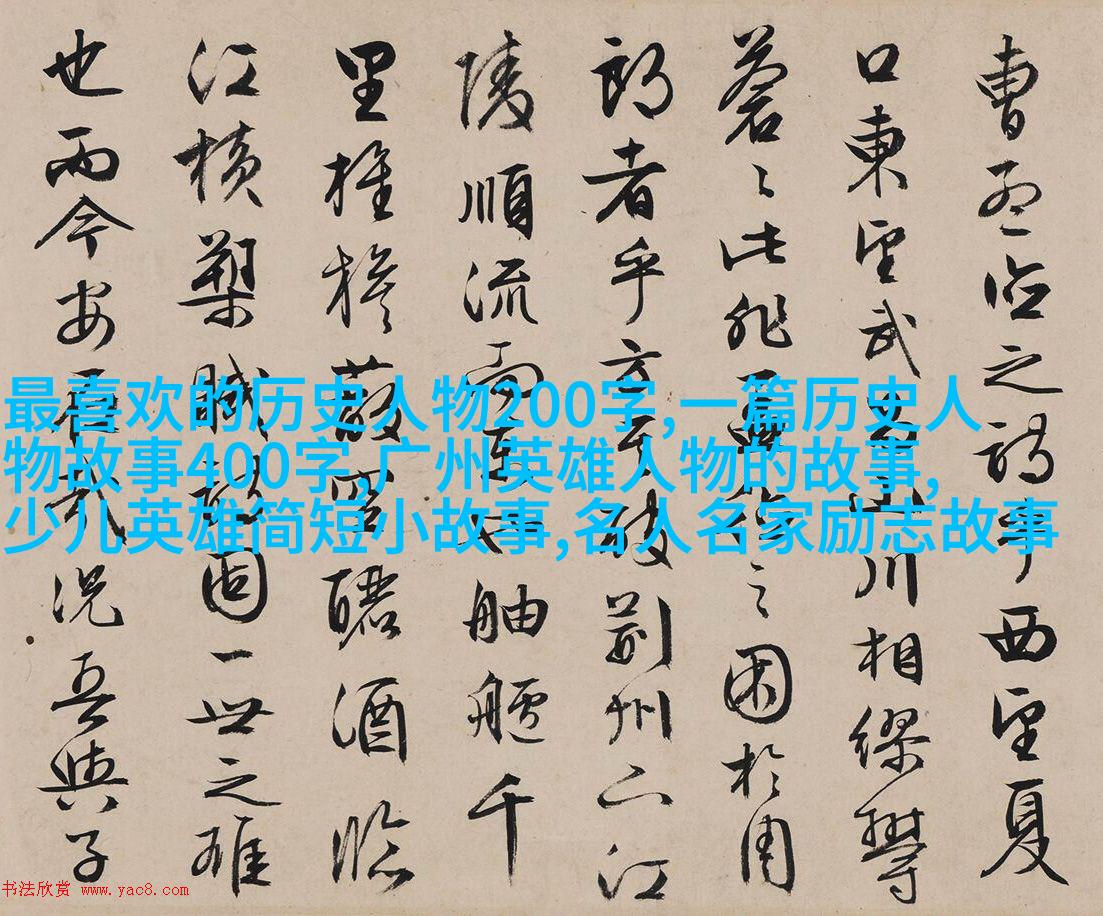 曹孟德之詩乎西望夏
口東望武昌山川相繆鬱
蒼〻此非孟德之困於周
郎者乎方其破荊州下江
陵順流而東也舳艫千
里旌旗蔽空釃酒臨
江橫槊賦詩固一世之雄
也而今安在哉況吾與子
最喜欢的历史人物200字,一篇历史人
物故事400字,广州英雄人物的故事,
少儿英雄简短小故事,名人名家励志故事
书法欣赏 www.yac8.com